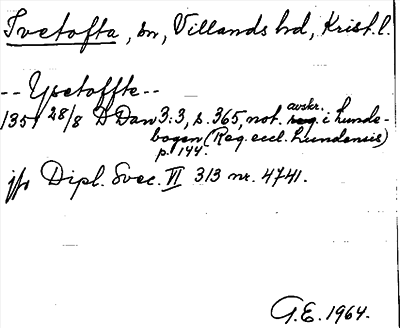 Ivetofta, sn, Villands hd, Krist. l.
-- Yvetoffte --
1351 28/8 D Dan 3:3, s. 365, not. avskr. i Lunde-
bogen (Reg. eccl. Lundensis)
p. 144.
jfr Dipl. Svec. VI 313 nr. 4741.
G.E. 1964.